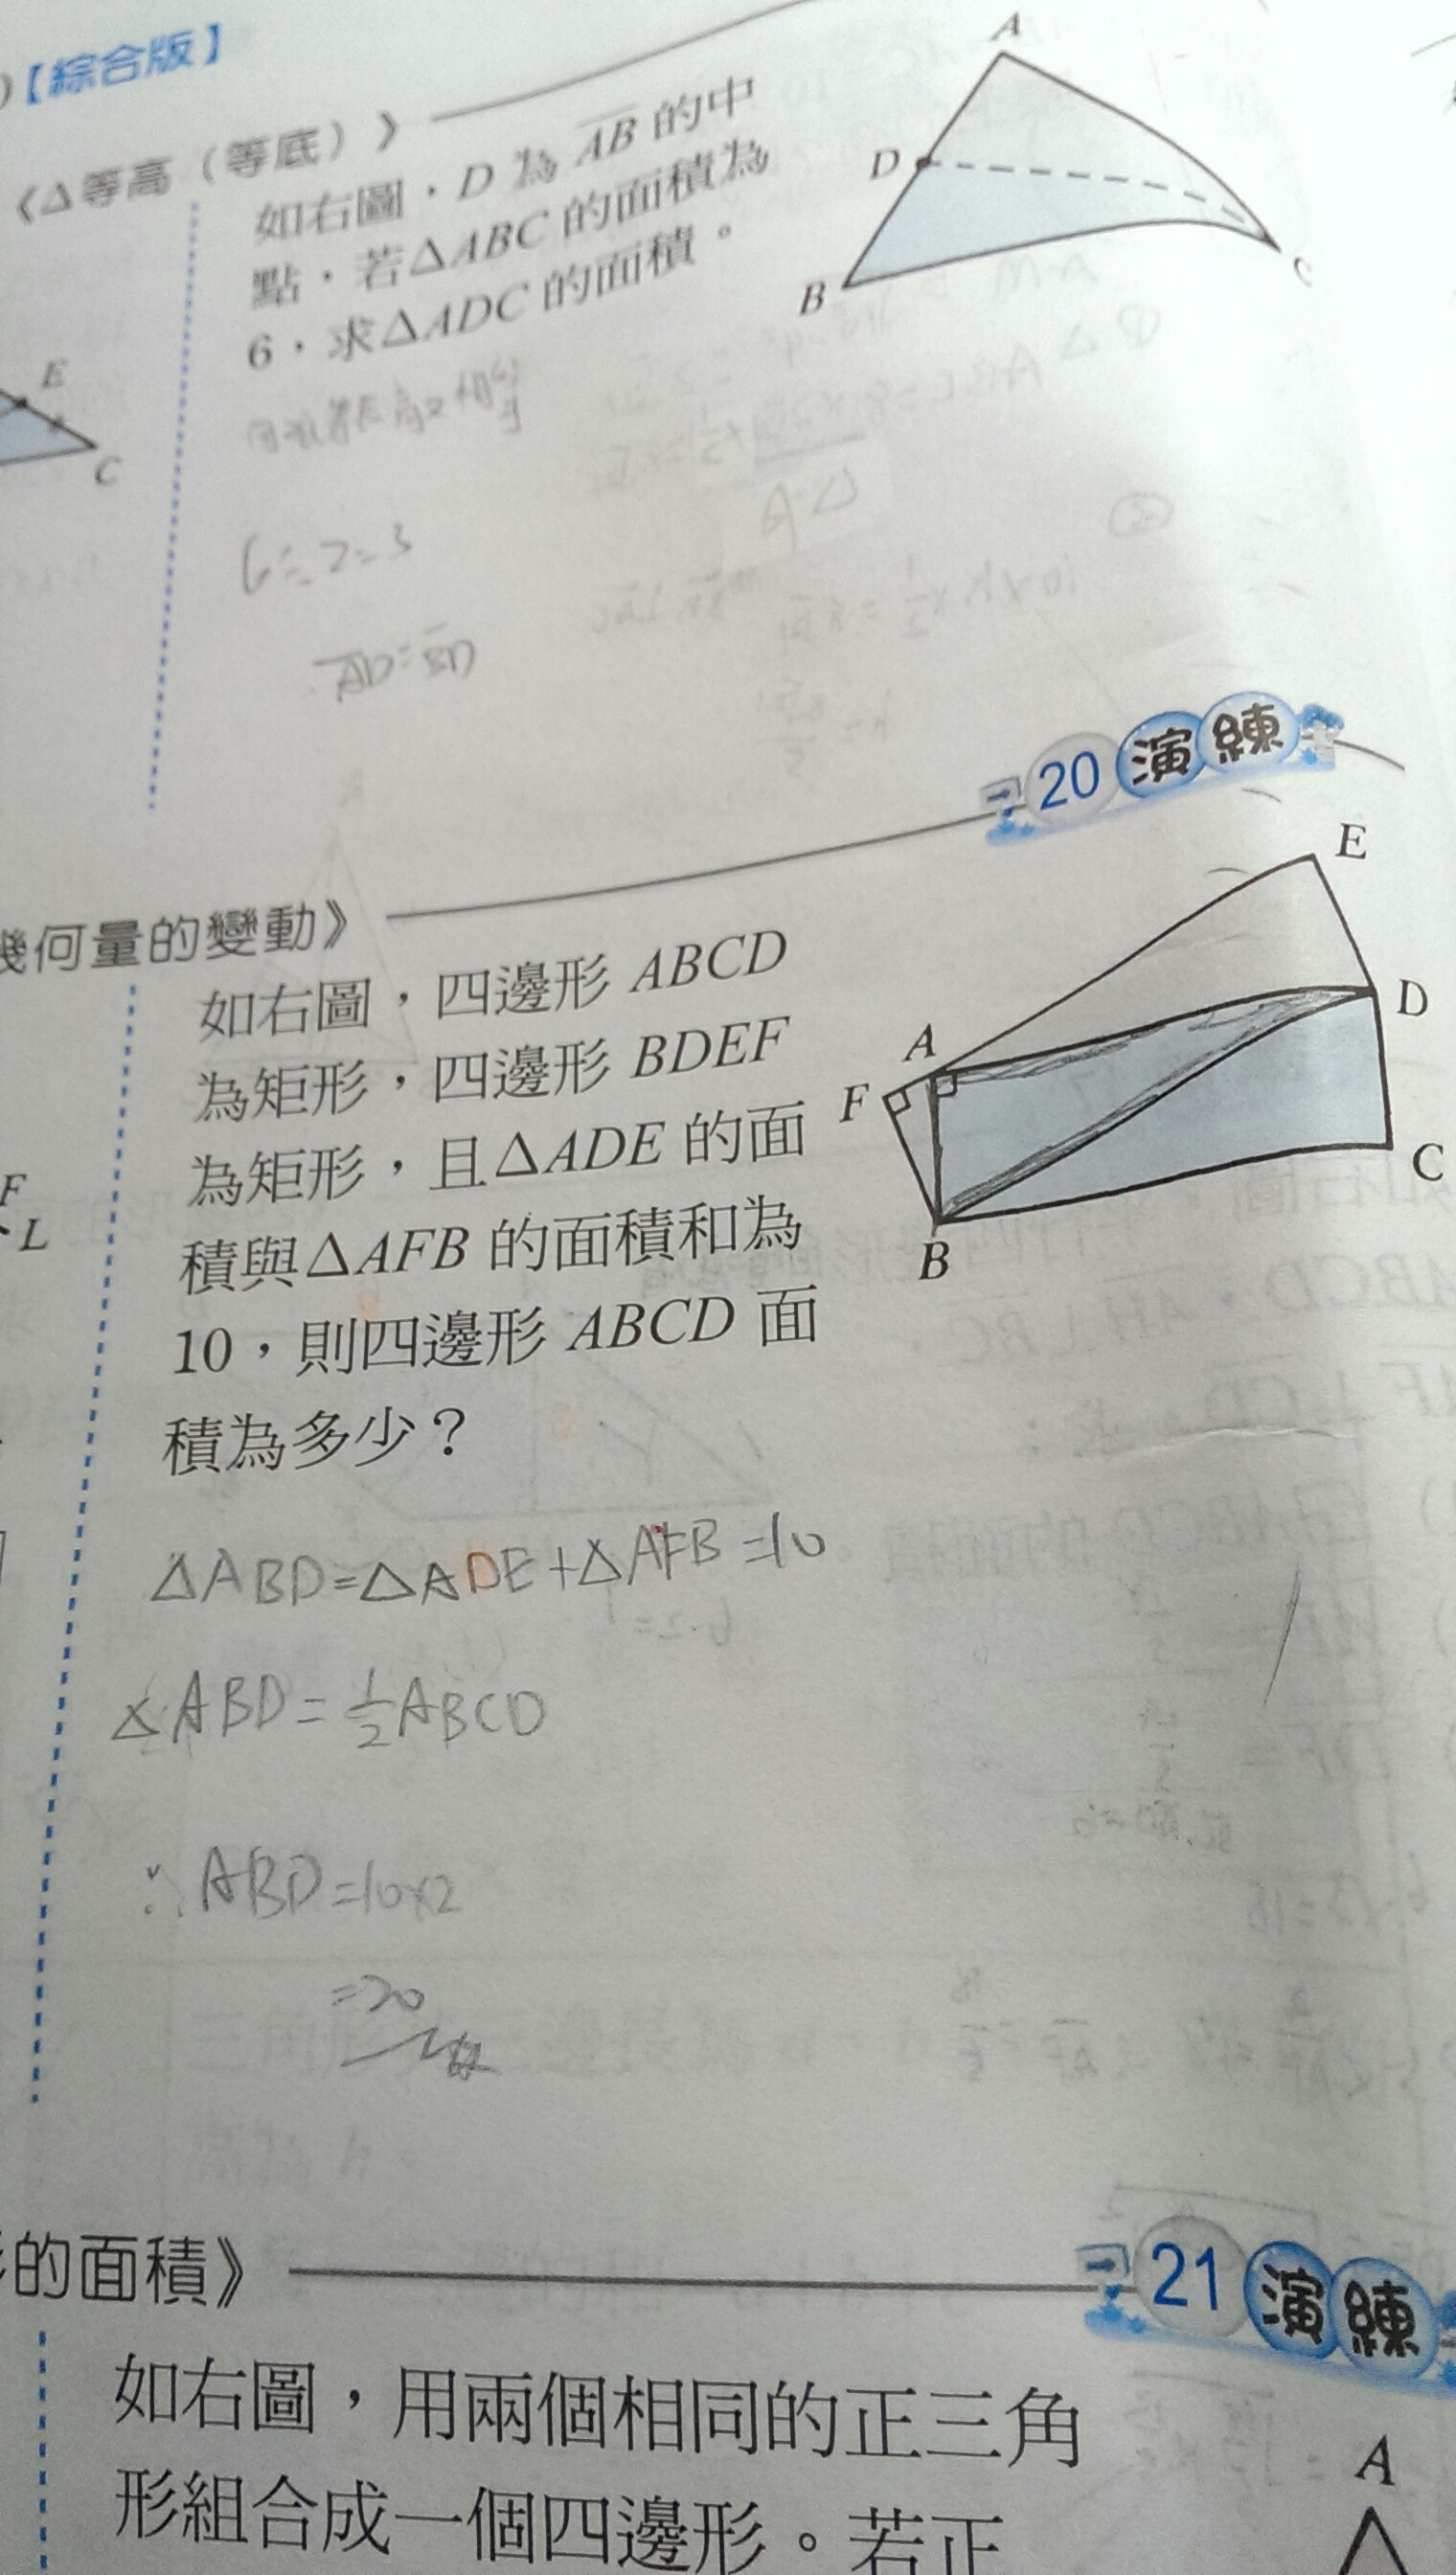 【綜合版】
《△等高（等底）》
如右圖，D 為 AB 的中
點，若△ABC 的面積為
6，求△ADC 的面積。
A
D
B
C
E
C
6÷2=3
AD=BD
20 演練
幾何量的變動》
如右圖，四邊形 ABCD
為矩形，四邊形 BDEF
為矩形，且△ADE 的面
積與△AFB 的面積和為
10，則四邊形 ABCD 面
積為多少？
E
D
A
F
C
B
F
L
△ABD=△ADE+△AFB=10
△ABD=1/2ABCD
∴ABD=10×2
=20
的面積》
21 演練
如右圖，用兩個相同的正三角
形組合成一個四邊形。若正
A